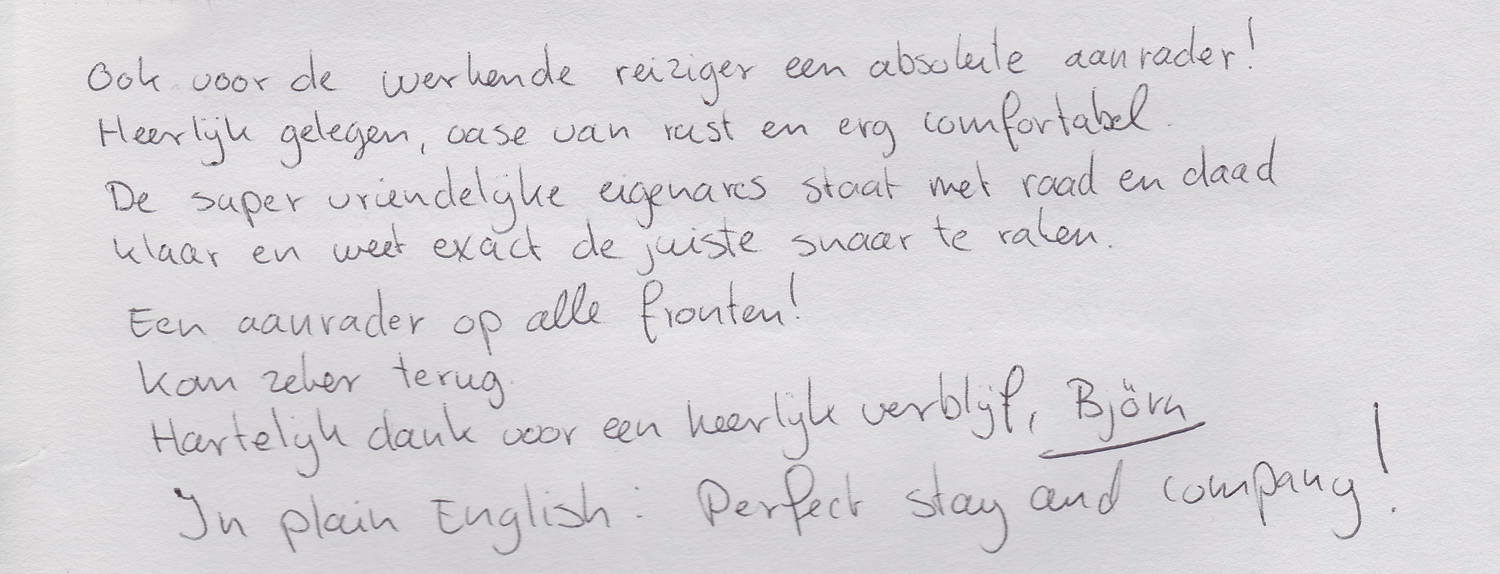 Ook voor de werkende reiziger een absolute aanrader!
Heerlijk gelegen, oase van rust en erg comfortabel.
De super vriendelijke eigenares staat met raad en daad
klaar en weet exact de juiste snaar te raken.
Een aanrader op alle fronten!
Kom zeker terug.
Hartelijk dank voor een heerlijk verblijf, Björn
In plain English: Perfect stay and company!